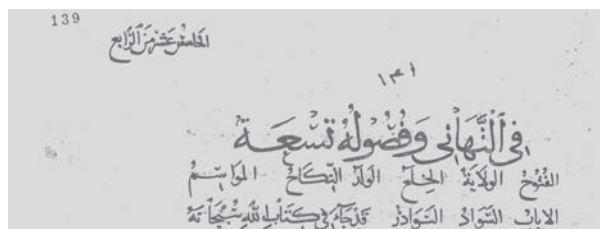 139
الخامس عشر من الرابع
١٣١
في التهاني وفصوله تسعة
الفتوح الولاية الخلع الولد النكاح المواسم
الاياب النوادر قد جاء في كتاب لله